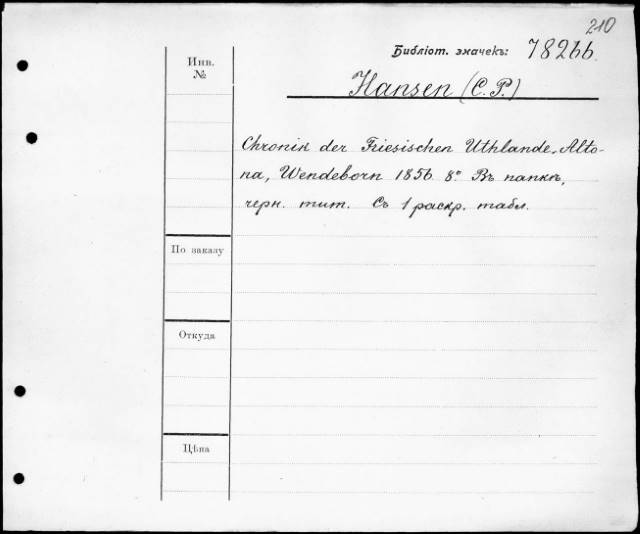 210
Библіот. значекъ: 78266.
Инв.
№
Hansen (C. P.)
Chronik der Friesischen Uthlande. Alto-
na, Wendeborn 1856 8° Въ папкѣ,
черн. тит. Съ 1 раскр. табл.
По заказу
Откуда
Цѣна